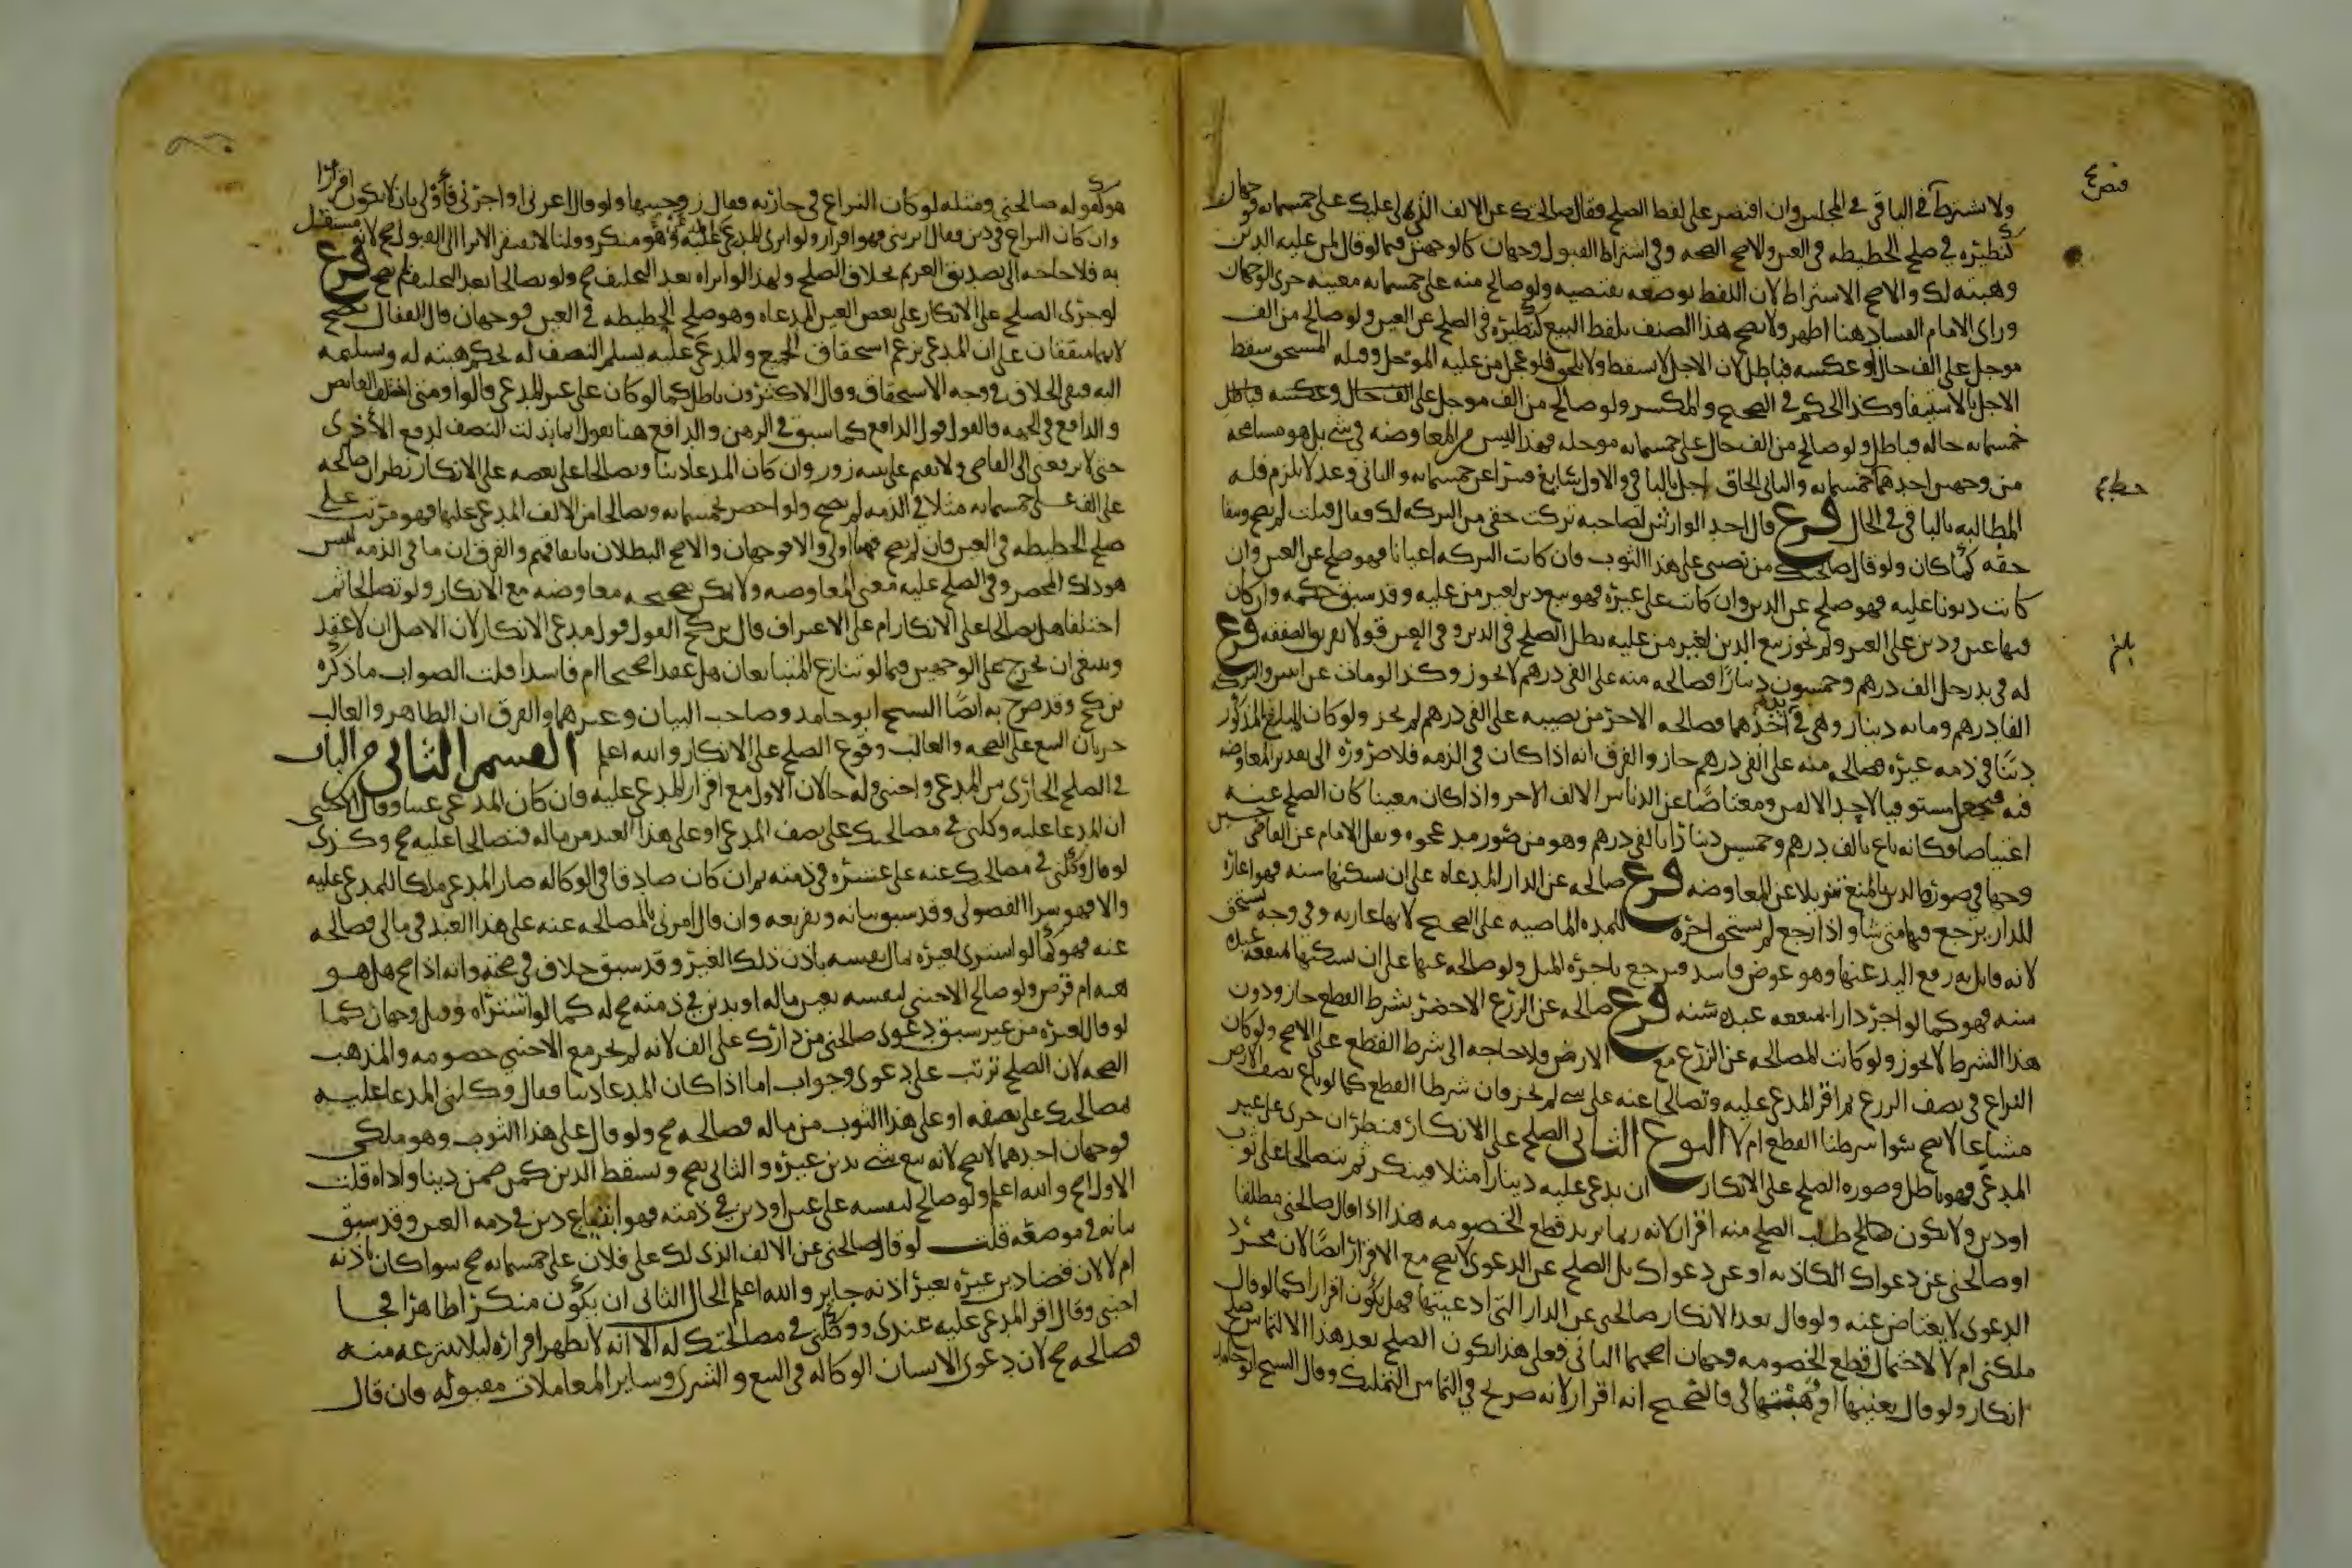 ولا يشترط الباقي في المجلس وان اقتصر على لفظ الصلح فقال صالحتك عن الالف الذي لي عليك على خمسمايه فوجهان
كنظيره في صلح الحطيطه في العين والاصح الصحه وفي اشتراط القبول وجهان كالوجهين فيما لو قال لمن عليه الدين
وهبته لك والاصح الاشتراط لان اللفظ بوضعه يقتضيه ولو صالح منه على خمسمايه معينه جرى الوجهان
وراى الامام الفساد هنا اظهر ولا يصح هذا الصنف بلفظ البيع كنظيره في الصلح عن العين ولو صالح من الف
موجل على الف حال او عكسه فباطل لان الاجل لا يسقط ولا يلحق فلو عجل من عليه الموجل وقبله المستحق سقط
الاجل بالاستيفا وكذا الحكم في الصحيح والمكسر ولو صالح من الف موجل على
خمسمايه حاله فباطل ولو صالح من الف حال على خمسمايه موجله فهذا ليس من المعاوضه في شي بل هو مسامحه
من وجهين احدهما خمسمايه والثاني الحاق اجل بالباقي والاول شايع فيبرا عن خمسمايه والثاني وعد لا يلزم فله
المطالبه بالباقي في الحال فرع قال احد الوارثين لصاحبه تركت حقي من التركه لك فقال قبلت لم يصح وبقا
حقه كما كان ولو قال صالحتك من نصيبي على هذا الثوب فان كانت التركه اعيانا فهو صلح عن العين وان
كانت ديونا عليه فهو صلح عن الدين وان كانت على غيره فهو بيع دين لغير من عليه وقد سبق حكمه وان كان
فيها عين ودين على الغير ولم نجوز بيع الدين لغير من عليه بطل الصلح في الدين وفي العين قولا تفريق الصفقه فرع
له في يد رجل الف درهم وخمسون دينارا فصالحه منه على الفي درهم لا يجوز وكذا لو مات عن ابنين والتركه
الفا درهم ومايه دينار وهي في يد احدهما فصالحه الاخر من نصيبه على الفي درهم لم يجز ولو كان المبلغ المذكور
دينا في ذمه غيره فصالحه منه على الفي درهم جاز والفرق انه اذا كان في الذمه فلا ضروره الى تقدير المعاوضه
فيه فيجعل مستوفيا لاحد الالفين ومعتاضا عن الدنانير الالف الاخر واذا كان معينا كان الصلح عنه
اعتياضا فكانه باع بالف درهم وخمسين دينارا بالفي درهم وهو من صور مد عجوه ونقل الامام عن القاضي حسين
وجها في صوره الدين بالمنع تنزيلا عن المعاوضه فرع صالحه عن الدار المدعاه على ان يسكنها سنه فهو اعاره
للدار يرجع فيها متى شا واذا رجع لم يستحق اجره للمده الماضيه على الصحيح لانها عاريه وفي وجه يستحق
لانه قابل به رفع اليد عنها وهو عوض فاسد فيرجع باجره المثل ولو صالحه عنها على ان يسكنها بمنفعه عبده
سنه فهو كما لو اجر دارا بمنفعه عبده سنه فرع صالحه عن الزرع الاخضر بشرط القطع جاز ودون
هذا الشرط لا يجوز ولو كانت المصالحه عن الزرع مع الارض فلا حاجه الى شرط القطع على الاصح ولو كان
النزاع في نصف الزرع ثم اقر المدعى عليه وتصالحا عنه على شي لم يجز وان شرطا القطع كما لو باع نصف الزرع
مشاعا لا يصح سوا شرطنا القطع ام لا النوع الثاني الصلح على الانكار فينظر ان جرى على غير
المدعى فهو باطل وصوره الصلح على الانكار ان يدعي عليه دينارا مثلا فينكر ثم يتصالحا على ثوب
او دين ولا يكون طلب الصلح منه اقرارا لانه ربما يريد قطع الخصومه هذا اذا قال صالحني مطلقا
او صالحني عن دعواك الكاذبه او عن دعواك بل الصلح عن الدعوى لا يصح مع الاقرار ايضا لان مجرد
الدعوى لا يعتاض عنه ولو قال بعد الانكار صالحني عن الدار التي ادعيتها فهل يكون اقرارا كما لو قال
ملكني ام لا لاحتمال قطع الخصومه وجهان اصحهما الثاني فعلى هذا يكون الصلح بعد هذا الالتماس صلح
انكار ولو قال بعنيها او هبنيها لي فالصحيح انه اقرار لانه صريح في التماس التمليك وقال الشيخ ابو حامد
هو كقوله صالحني ومثله لو كان النزاع في جاريه فقال زوجنيها ولو قال اعرني او اجرني فاولى بان لا يكون اقرارا
وان كان النزاع في دين فقال ابريني فهو اقرار ولو ابرى المدعي المدعى عليه وهو منكر وقلنا لا يفتقر الابرا الى القبول صح لانه مستقل
به فلا حاجه الى تصديق الغريم بخلاف الصلح ولهذا لو ابراه بعد التحليف صح ولو تصالحا بعد التحليف لم يصح فرع
لو جرى الصلح على الانكار على بعض العين المدعاه وهو صلح الحطيطه في العين فوجهان قال القفال يصح
لانهما متفقان على ان المدعي يزعم استحقاق الجميع والمدعى عليه يسلم النصف له بحكم هبته له وتسليمه
اليه فبقى الخلاف في وجه الاستحقاق وقال الاكثرون باطل كما لو كان على غير المدعى قالوا ومتى اختلف القابض
والدافع في الجهه فالقول قول الدافع كما سبق في الرهن والدافع هنا يقول انما بذلت النصف لدفع الاذى
حتى لا يرفعني الى القاضي ولا يقيم علي بينه زور وان كان المدعا دينا وتصالحا على بعضه على الانكار نظر ان صالحه
على الف على خمسمايه مثلا في الذمه لم يصح ولو احضر خمسمايه وتصالحا من الالف المدعى عليها فهو مرتب على
صلح الحطيطه في العين فان لم يصح فهنا اولى والا فوجهان والاصح البطلان باتفاقهم والفرق ان ما في الذمه ليس
هو ذلك المحضر وفي الصلح عليه معنى المعاوضه ولا يمكن تصحيحه معاوضه مع الانكار ولو تصالحا ثم
اختلفا هل تصالحا على الانكار ام على الاعتراف قال بن كج القول قول مدعي الانكار لان الاصل ان لا عقد
وينبغي ان يخرج على الوجهين فيما لو تنازع المتبايعان هل عقدا صحيحا ام فاسدا قلت الصواب ما ذكره
بن كج وقد صرح به ايضا الشيخ ابو حامد وصاحب البيان وغيرهما والفرق ان الظاهر والغالب
جريان البيع على الصحه والغالب وقوع الصلح على الانكار والله اعلم القسم الثاني من الباب
في الصلح الجاري بين المدعي واجنبي وله حالان الاول مع اقرار المدعى عليه فان كان المدعى عينا وقال الاجنبي
ان المدعا عليه وكلني في مصالحتك على نصف المدعى او على هذا العبد من ماله فتصالحا عليه صح وكذى
لو قال وكلني في مصالحتك عنه على عشره في ذمته ثم ان كان صادقا في الوكاله صار المدعى ملكا للمدعى عليه
والا فهو شرا الفضولي وقد سبق بيانه وتفريعه وان قال امرني بالمصالحه عنه على هذا العبد في مالي فصالحه
عنه فهو كما لو اشترى لغيره بمال نفسه باذن ذلك الغير وقد سبق خلاف في صحته وانه اذا صح هل هو
هبه ام قرض ولو صالح الاجنبي لنفسه بعين ماله او بدين في ذمته صح له كما لو اشتراه وقيل وجهان كما
لو قال لغيره من غير سبق دعوى صالحني من دارك على الف لانه لم يجر مع الاجنبي خصومه والمذهب
الصحه لان الصلح ترتب على دعوى وجواب اما اذا كان المدعا دينا فقال وكلني المدعا عليه
بمصالحتك على نصفه او على هذا الثوب من ماله فصالحه صح ولو قال على هذا الثوب وهو ملكي
فوجهان احدهما لا يصح لانه بيع شي بدين غيره والثاني يصح ويسقط الدين كمن ضمن دينا واداه قلت
الاول اصح والله اعلم ولو صالح لنفسه على عين او دين في ذمته فهو ابتياع دين في ذمه الغير وقد سبق
بيانه في موضعه قلت لو قال صالحني عن الالف الذي لك على فلان على خمسمايه صح سوا كان باذنه
ام لا لان قضا دين غيره بغير اذنه جايز والله اعلم الحال الثاني ان يكون منكرا ظاهرا فجا
اجنبي وقال اقر المدعى عليه عندي ووكلني في مصالحتك له الا انه لا يظهر اقراره ليلا ينتزعه منه
فصالحه صح لان دعوى الانسان الوكاله في البيع والشرى وساير المعاملات مقبوله وان قال